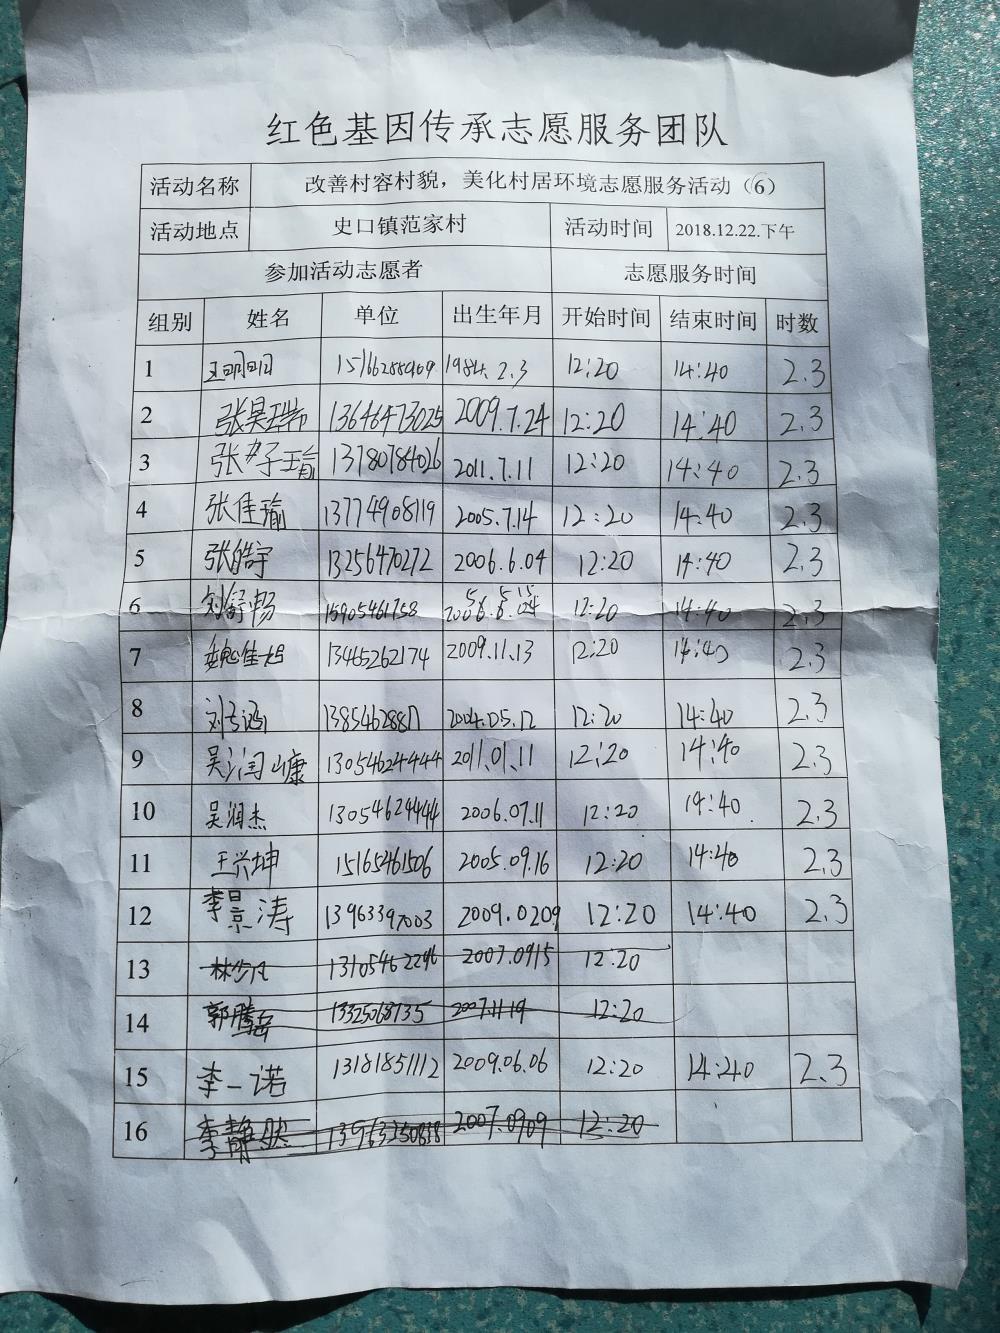 红色基因传承志愿服务团队
活动名称 改善村容村貌，美化村居环境志愿服务活动（6）
活动地点 史口镇范家村 活动时间 2018.12.22.下午
参加活动志愿者 志愿服务时间
组别 姓名 单位 出生年月 开始时间 结束时间 时数
1 王明明 15166288909 1984.2.3 12:20 14:40 2.3
2 张昊 13646473025 2009.7.24 12:20 14:40 2.3
3 张子瑜 13780784026 2011.7.11 12:20 14:40 2.3
4 张佳瑜 13774908119 2005.7.14 12:20 14:40 2.3
5 张皓宇 13256470272 2006.6.04 12:20 14:40 2.3
6 刘舒畅 15905461758 12:20 14:40 2.3
7 魏佳 13465262174 2009.11.13 12:20 14:40 2.3
8 刘 2004.05.12 12:20 14:40 2.3
9 吴润康 13054624444 2011.01.11 12:20 14:40 2.3
10 吴润杰 13054624444 2006.07.11 12:20 14:40 2.3
11 王兴坤 15165461506 2005.09.16 12:20 14:40 2.3
12 李景涛 13963397003 2009.0209 12:20 14:40 2.3
13 林 13105462296 2007.0915 12:20
14 郭腾 13325068735 2007.11.19 12:20
15 李一诺 13181851112 2009.06.06 12:20 14:40 2.3
16 李静 2007.0909 12:20